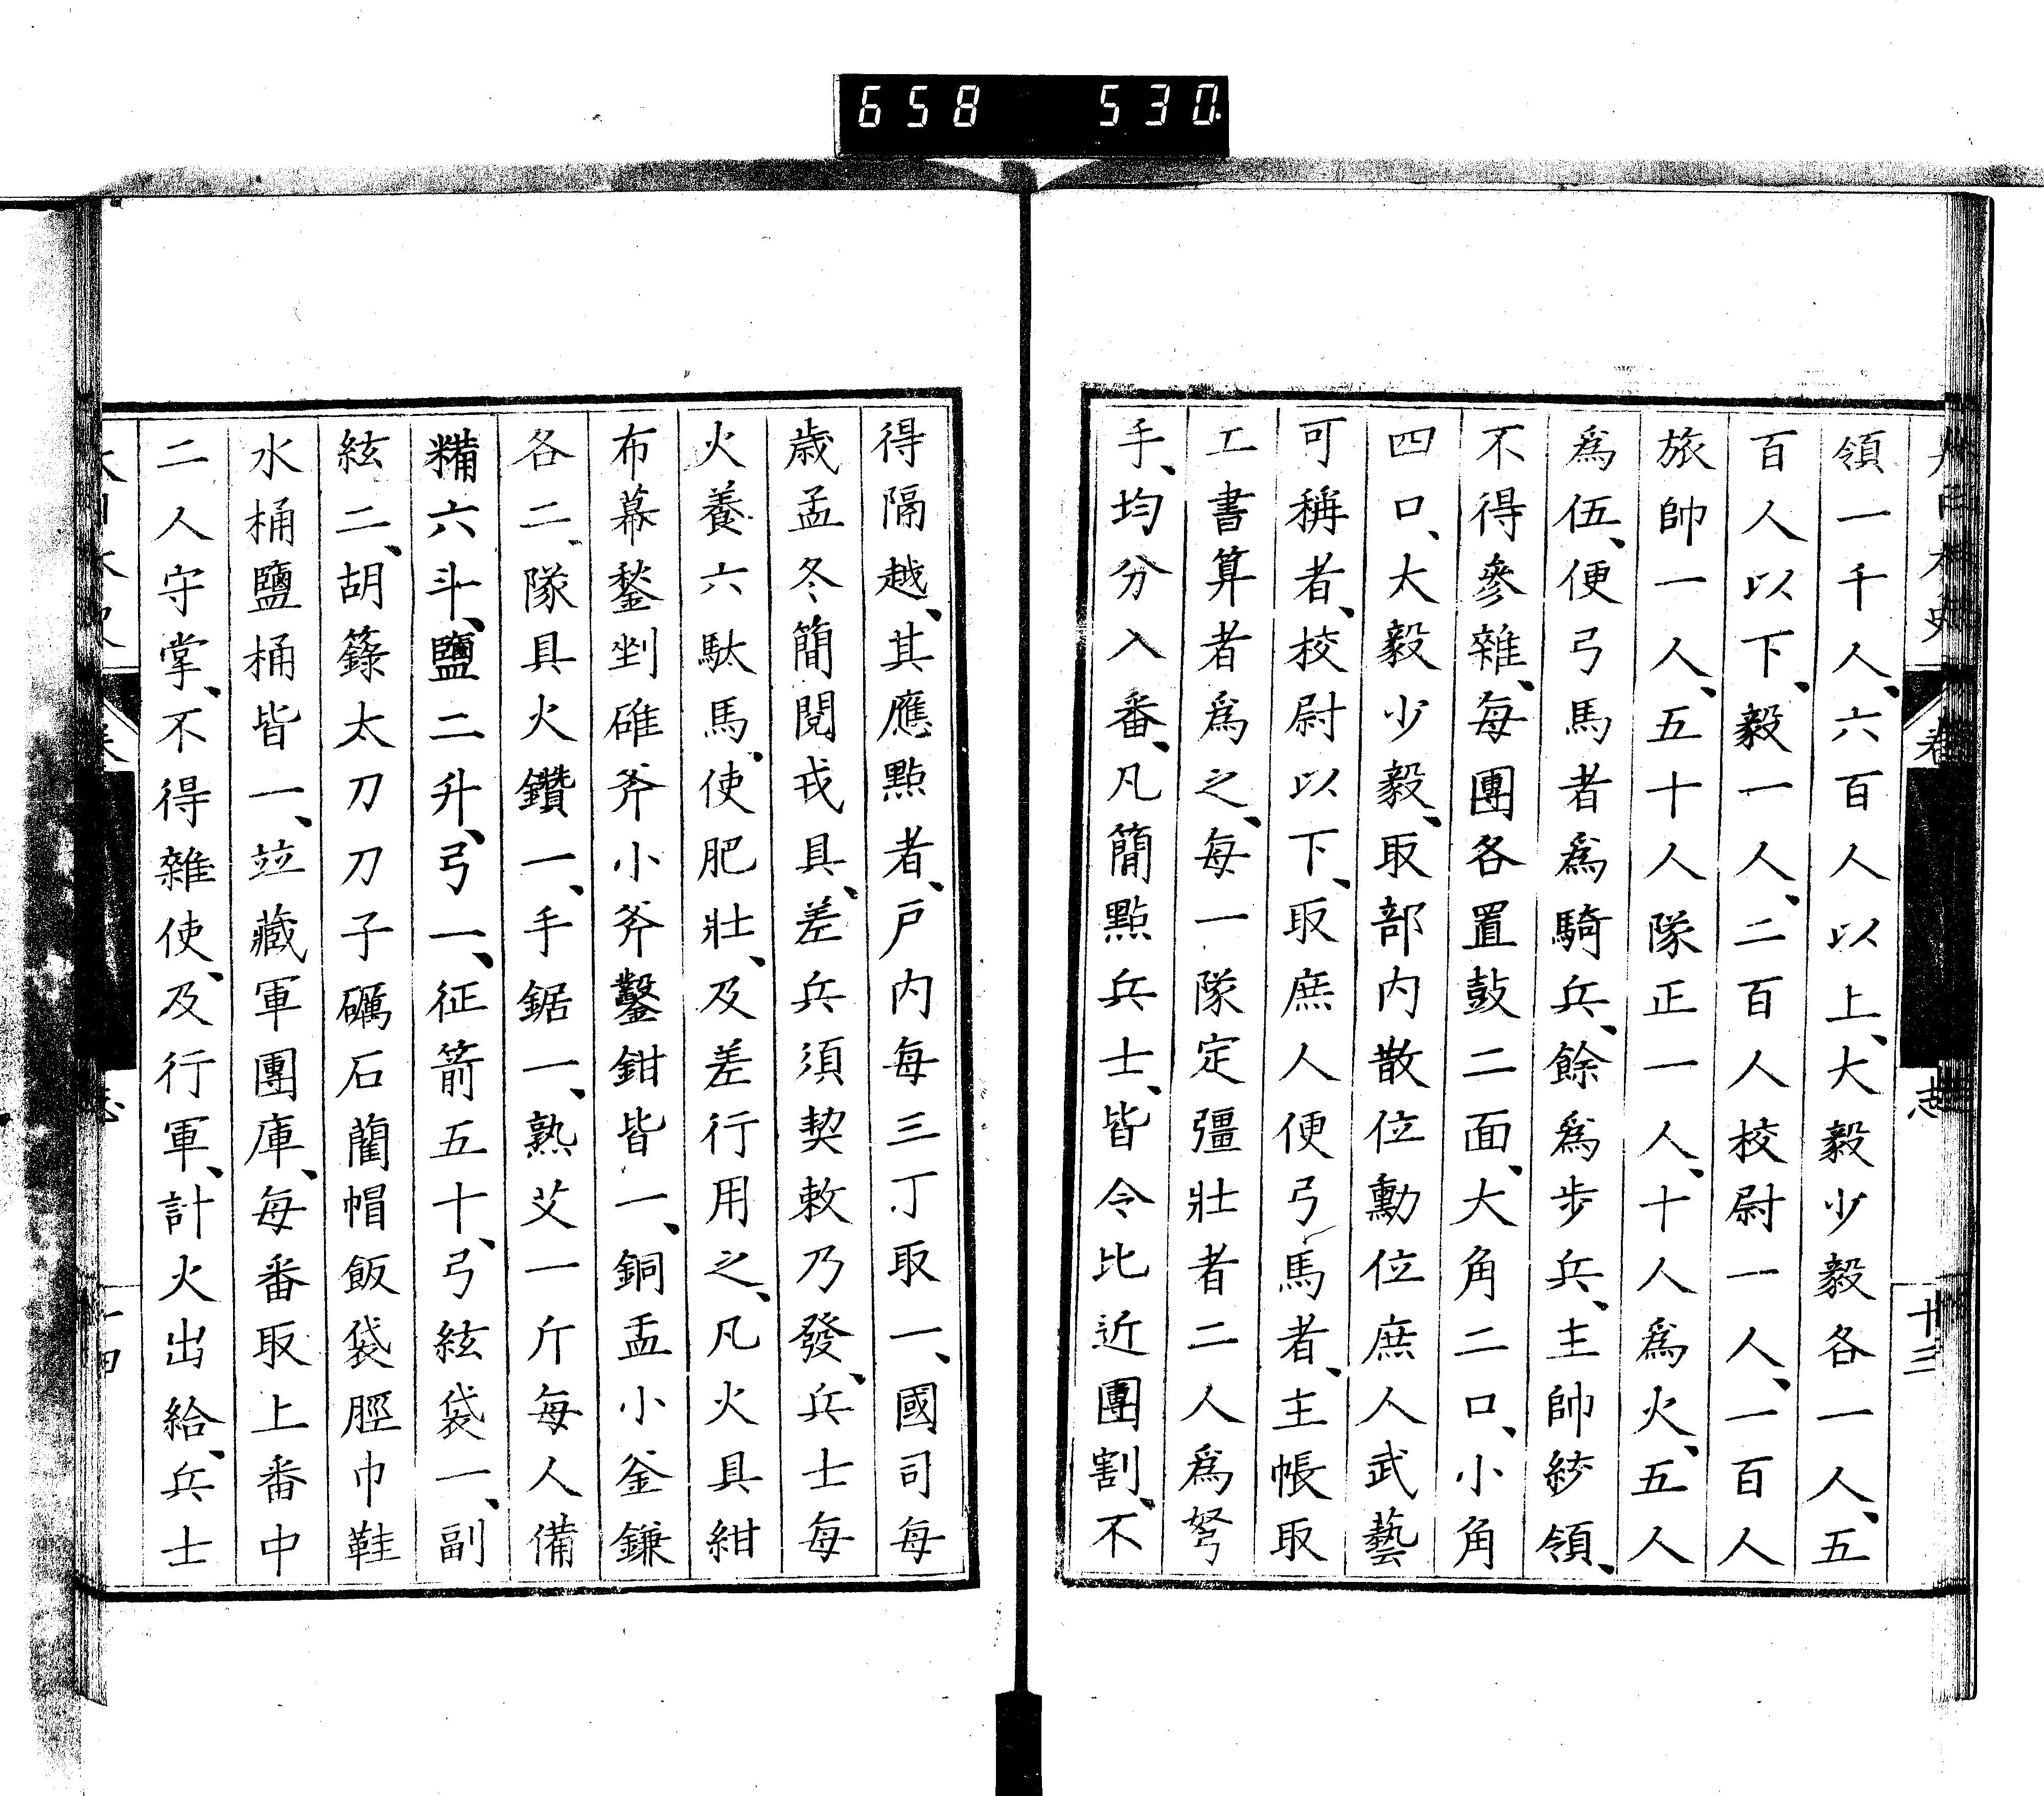 658 530
領一千人、六百人以上、大毅少毅各一人、五
百人以下、毅一人、二百人校尉一人、一百人
旅帥一人、五十人隊正一人、十人爲火、五人
爲伍、便弓馬者爲騎兵、餘爲步兵、主帥紗領、
不得參雜、每團各置鼓二面、大角二口、小角
四口、大毅少毅、取部内散位勳位庶人武藝
可稱者、校尉以下、取庶人便弓馬者、主帳取
工書算者爲之、每一隊定彊壯者二人爲弩
手、均分入番、凡簡點兵士、皆令比近團割、不
得隔越、其應點者、戸内每三丁取一、國司每
歲孟冬簡閱戎具、差兵須契敕乃發、兵士每
火養六駄馬、使肥壯、及差行用之、凡火具紺
布幕鍫剉碓斧小斧鑿鉗皆一、銅盂小釜鎌
各二、隊具火鑽一、手鋸一、熟艾一斤每人備
糒六斗、鹽二升、弓一、征箭五十、弓絃袋一、副
絃二、胡簶太刀刀子礪石藺帽飯袋脛巾鞋
水桶鹽桶皆一、竝藏軍團庫、每番取上番中
二人守掌、不得雜使、及行軍、計火出給、兵士
志
十三